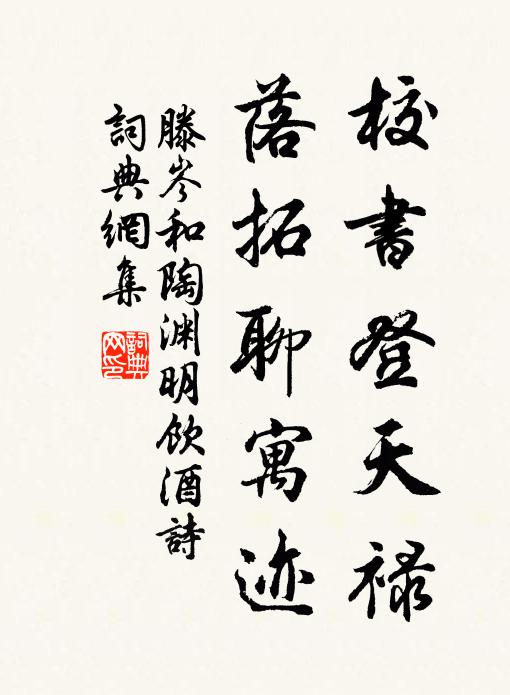 校書登天祿
落拓聊寓迹
滕岑和陶渊明飲酒詩
詞典網集
詞典网印